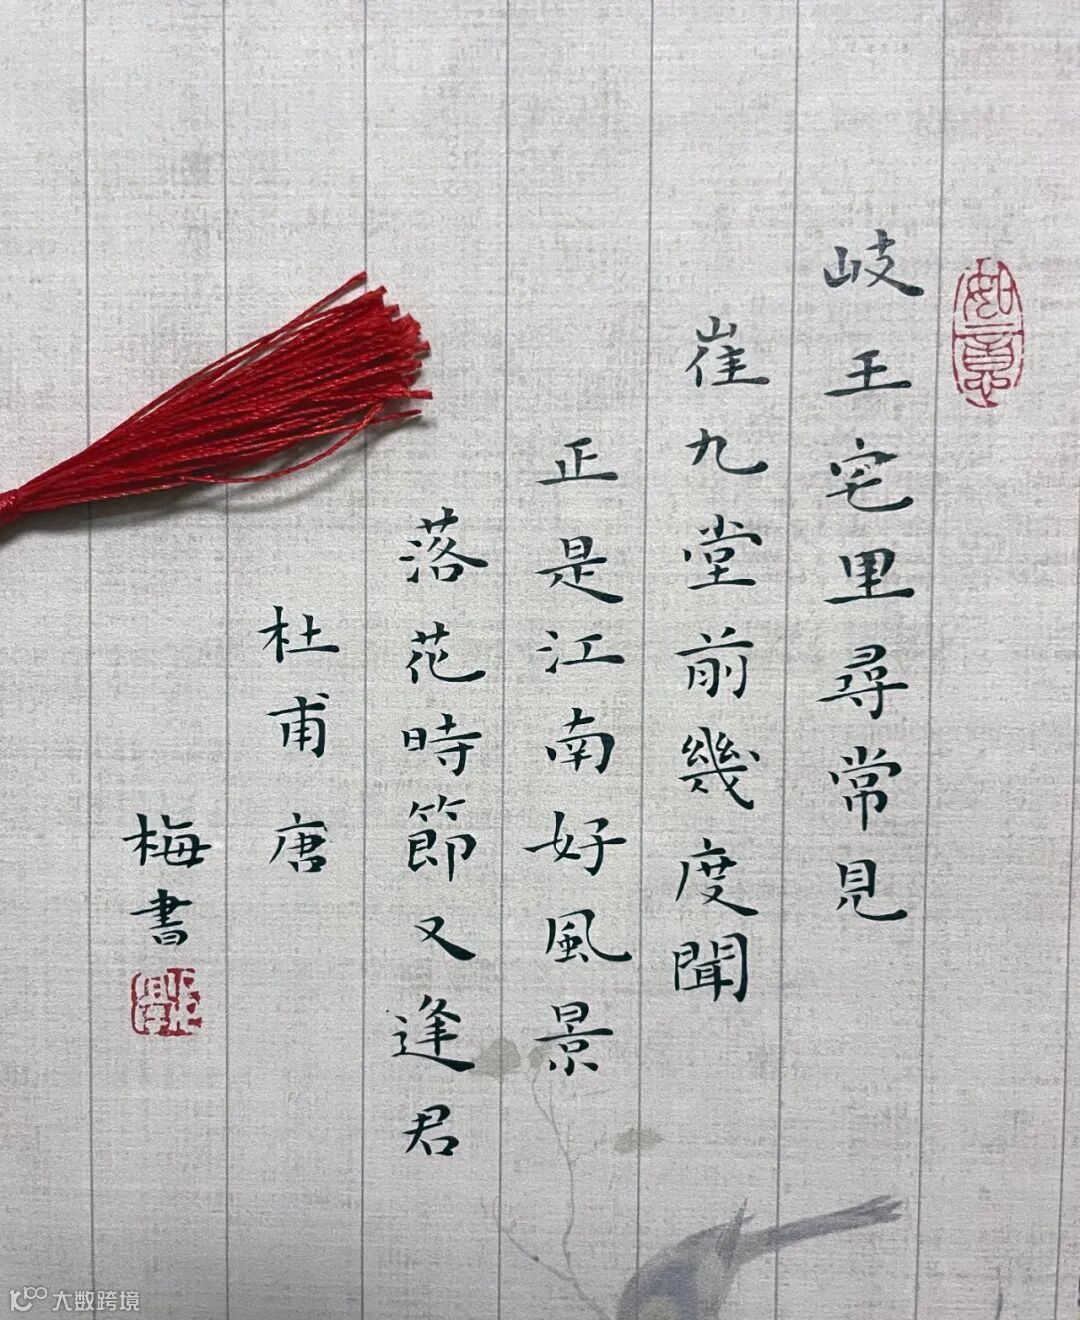 如意
岐王宅里尋常見
崔九堂前幾度聞
正是江南好風景
落花時節又逢君
杜甫唐
梅書
大数跨境